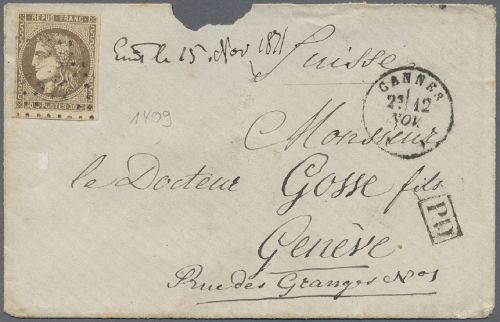 REPUB. FRANC.
30 POSTES 30
le 15 Nov 1871
Suisse
CANNES
12
NOV.
1409
Monsieur
le Docteur Gosse fils
PD
Genève
Rue des Granges No 1